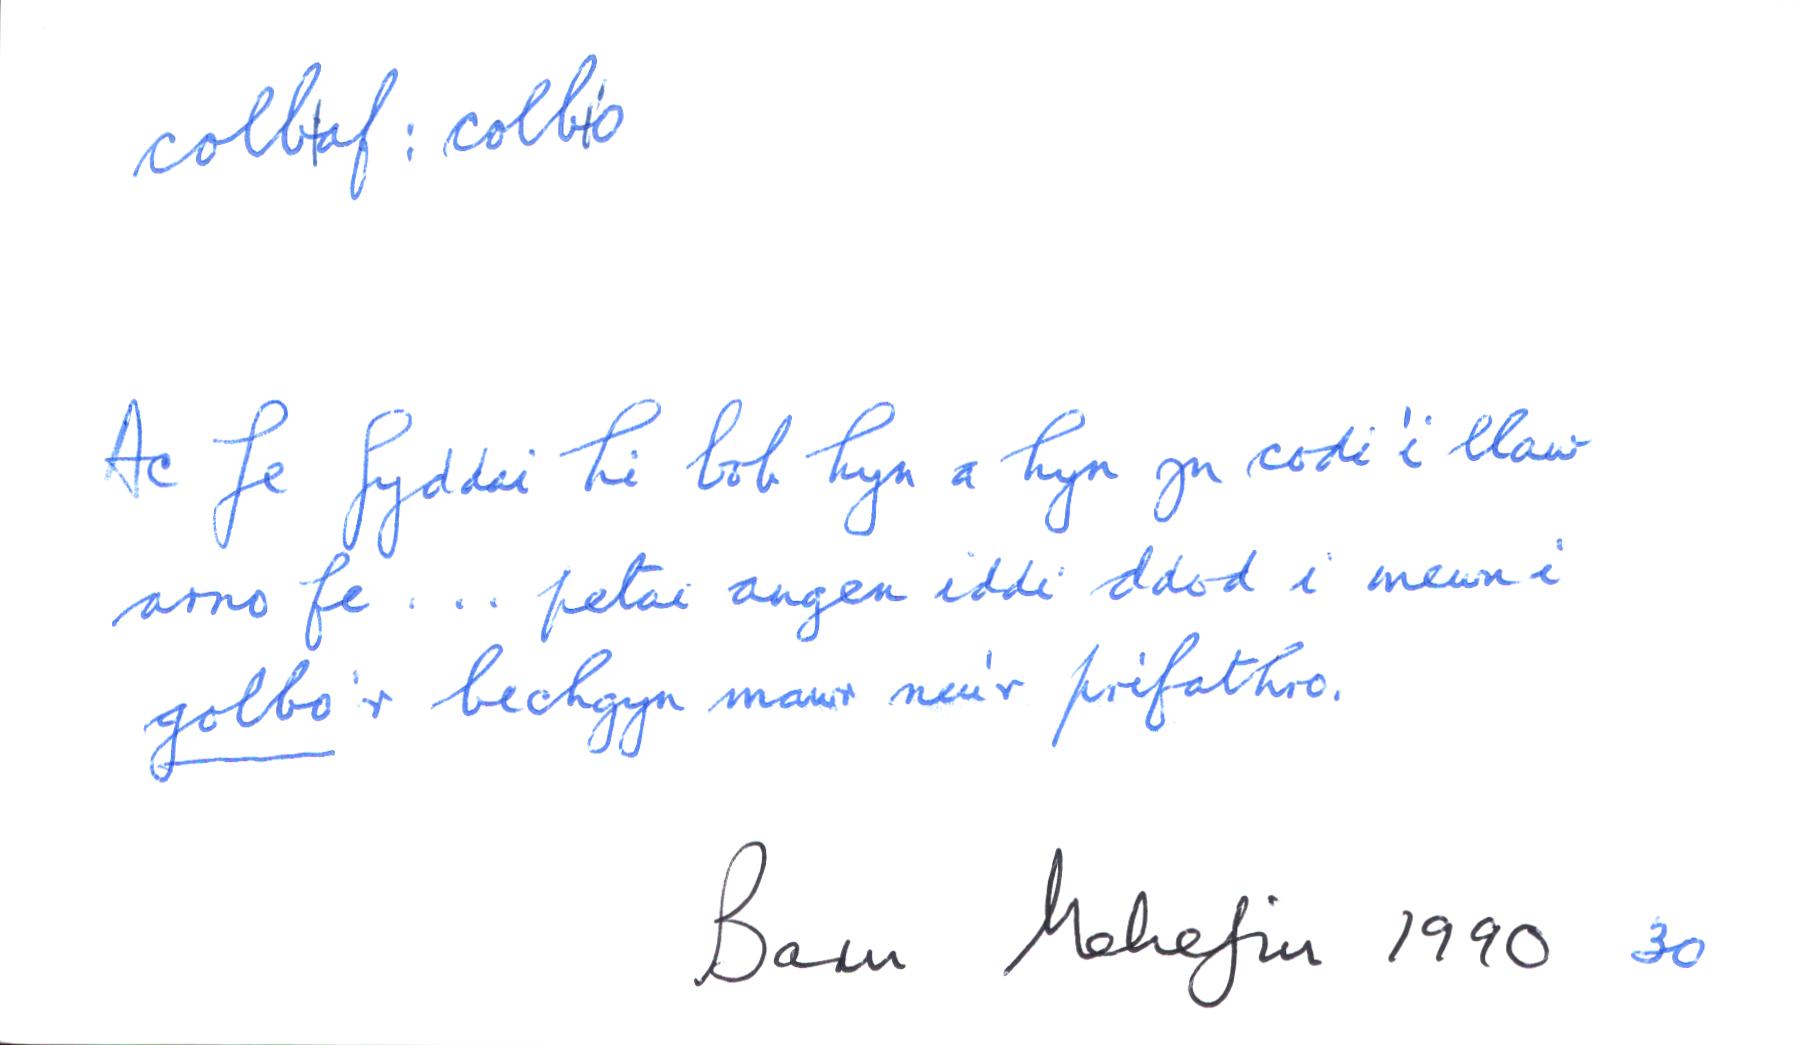 colbiaf: colbio
Ac fe fyddai hi bob hyn a hyn yn codi'i llaw
arno fe ... petai angen iddi ddod i mewn i
golbo'r bechgyn mawr neu'r prifathro.
Barn Mehefin 1990 30